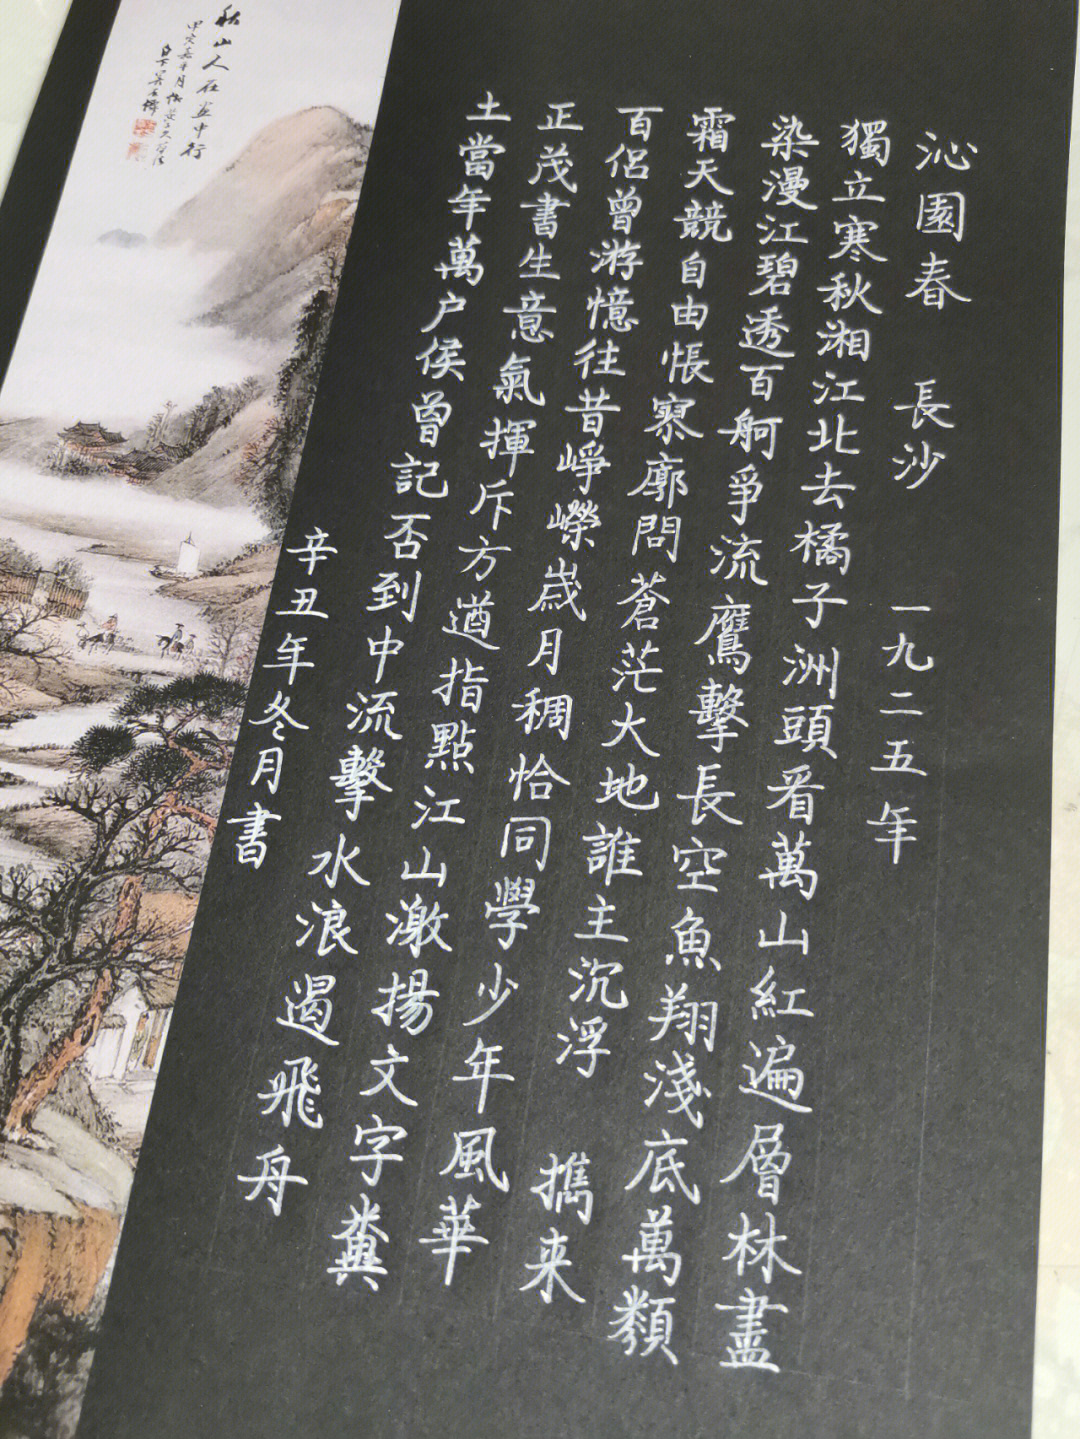 沁園春 長沙 一九二五年
獨立寒秋湘江北去橘子洲頭看萬山紅遍層林盡
染漫江碧透百舸爭流鷹擊長空魚翔淺底萬類
霜天競自由悵寥廓問蒼茫大地誰主沉浮 攜来
百侣曾游憶往昔崢嶸歲月稠恰同學少年風華
正茂書生意氣揮斥方遒指點江山激揚文字糞
土當年萬户侯曾記否到中流擊水浪遏飛舟
辛丑年冬月書
秋山人在画中行